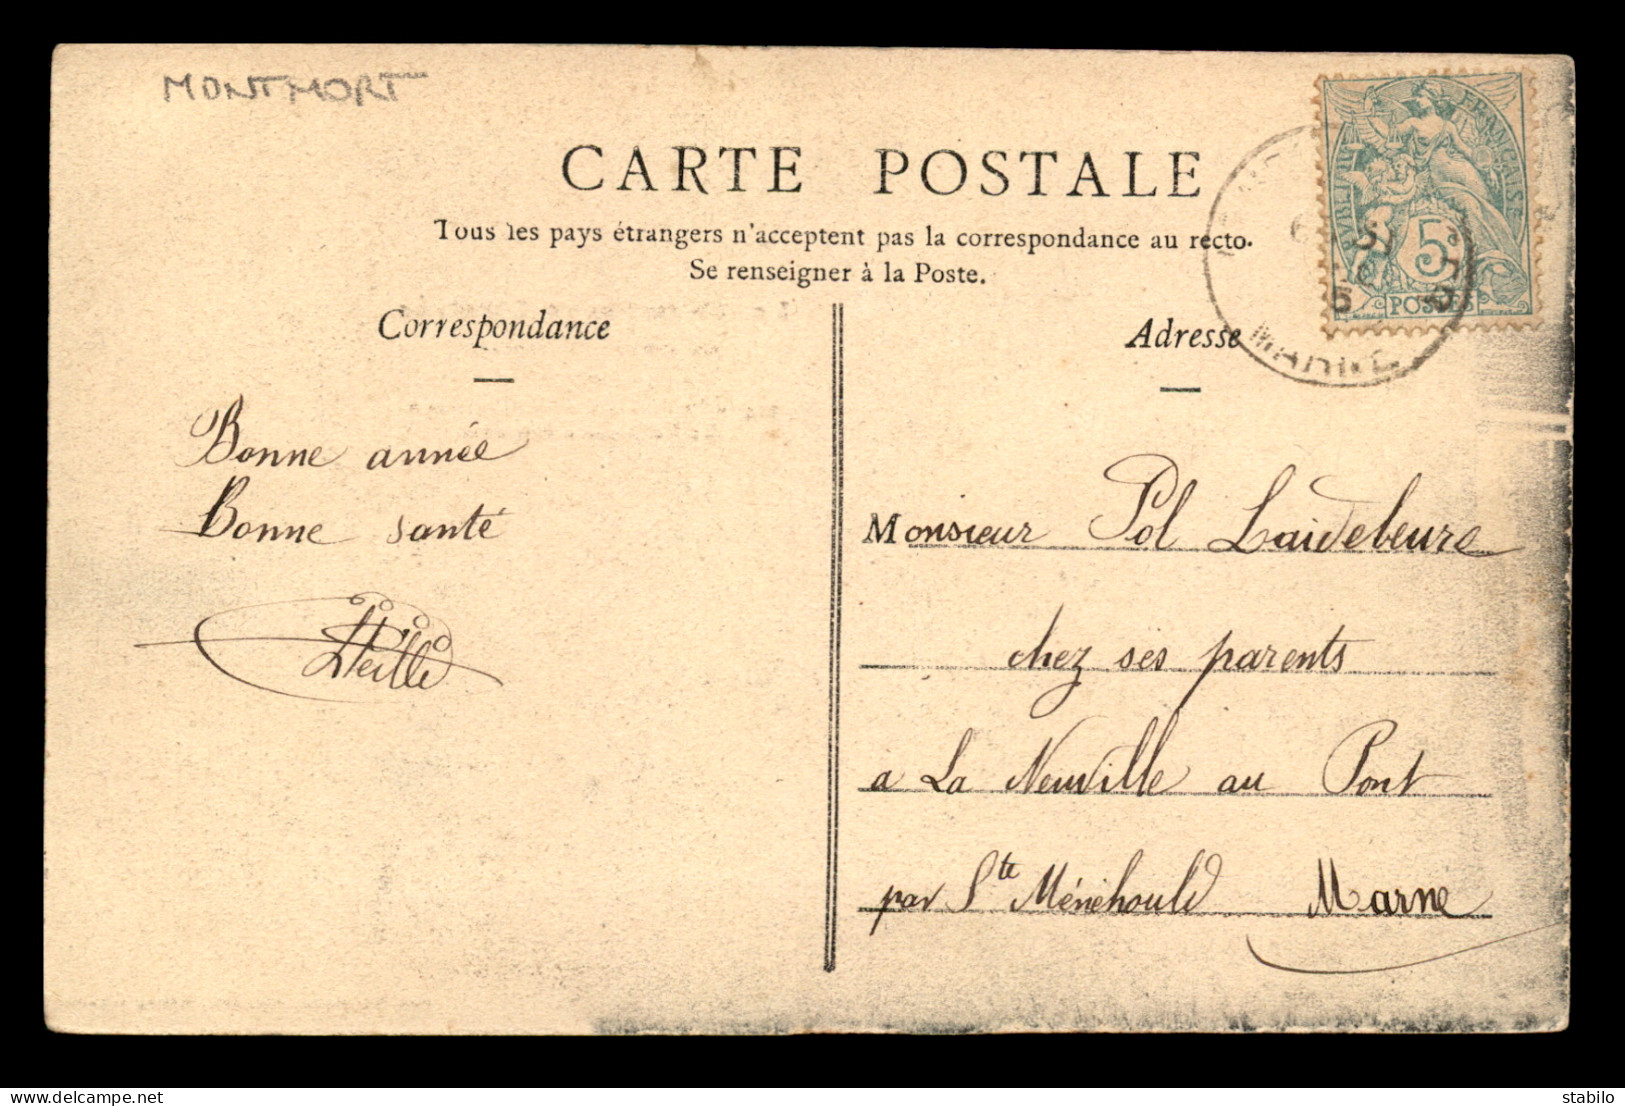 MONTMORT
CARTE POSTALE
Tous les pays étrangers n'acceptent pas la correspondance au recto.
Se renseigner à la Poste.
Correspondance
Adresse
FRANÇAISE
5
POSTES
MARNE
Bonne année
Bonne santé
Monsieur Pol Laidebeure
chez ses parents
a La Neuville au Pont
par Ste Ménéhould Marne
delcampe.net
stabilo